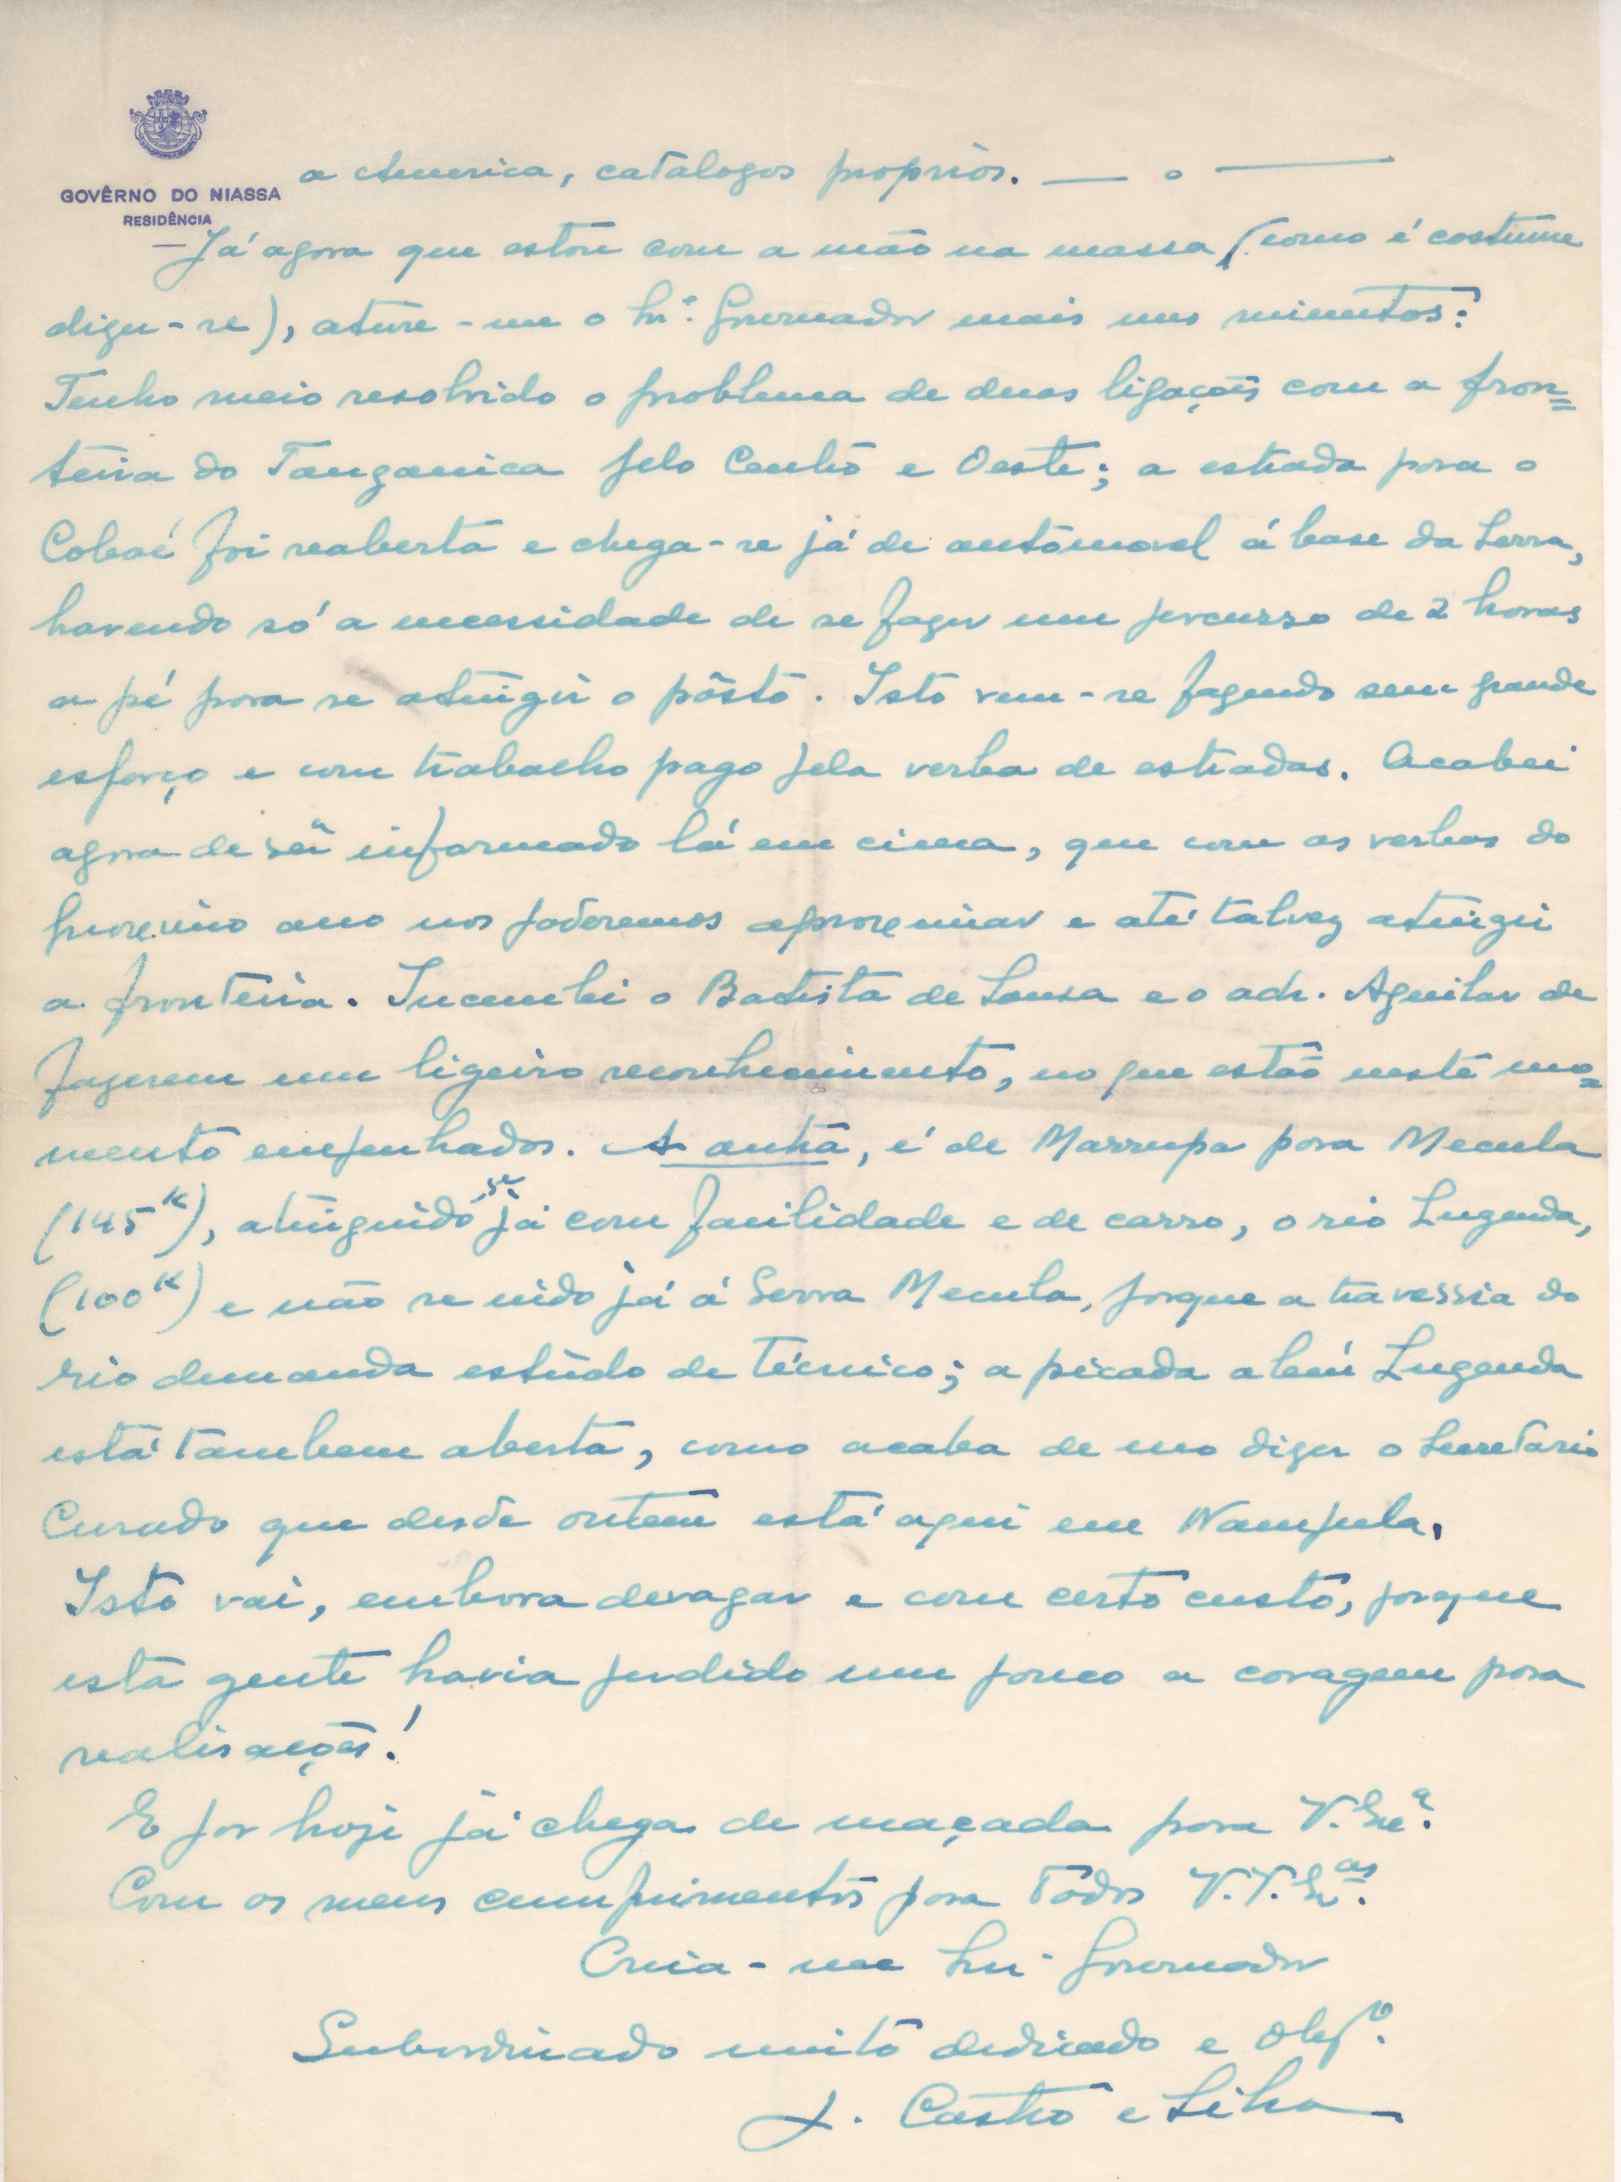 GOVÊRNO DO NIASSA
RESIDÊNCIA
a America, catalogos proprios. — o —
— Já agora que estou com a mão na massa (como é costume
dizer-se), ature-me o Snr. Governador mais uns minutos:
Tenho meio resolvido o problema de duas ligações com a fron=
teira do Tanganica pelo Centro e Oeste; a estrada para o
Cobué foi reaberta e chega-se já de automovel á base da Serra,
havendo só a necessidade de se fazer um percurso de 2 horas
a pé para se atingir o pôsto. Isto vem-se fazendo sem grande
esforço e com trabalho pago pela verba de estradas. Acabei
agora de ser informado lá em cima, que com as verbas do
proximo ano nos poderemos aproximar e até talvez atingir
a fronteira. Incumbi o Batista de Sousa e o adr. Aguilar de
fazerem um ligeiro reconhecimento, no que estão neste mo=
mento empenhados. A outra, é de Marrupa para Mecula
(145 K), atingindo se já com facilidade e de carro, o rio Lugenda,
(100 K) e não se indo já á Serra Mecula, porque a travessia do
rio demanda estudo de técnico; a picada alem Lugenda
está tambem aberta, como acaba de mo dizer o Secretario
Curado que desde ontem está aqui em Nampula.
Isto vai, embora devagar e com certo custo, porque
esta gente havia perdido um pouco a coragem para
realisações!
E por hoje já chega de maçada para V. Exª.
Com os meus cumprimentos para todos V.V. Exas.
Creia-me Snr. Governador
Subordinado muito dedicado e Obgº.
J. Castro e Silva